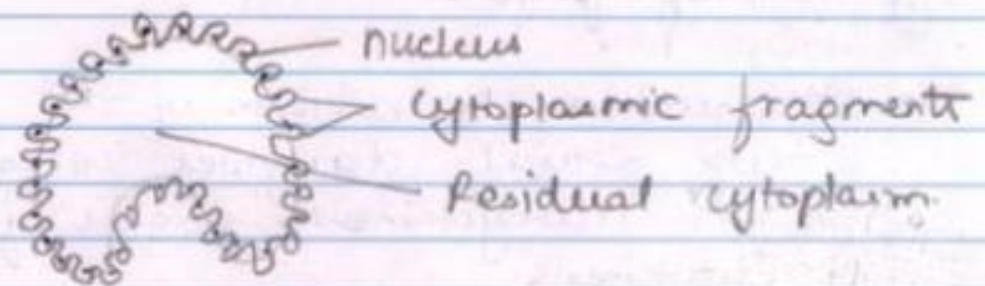 nucleus
Cytoplasmic fragments
Residual cytoplasm.